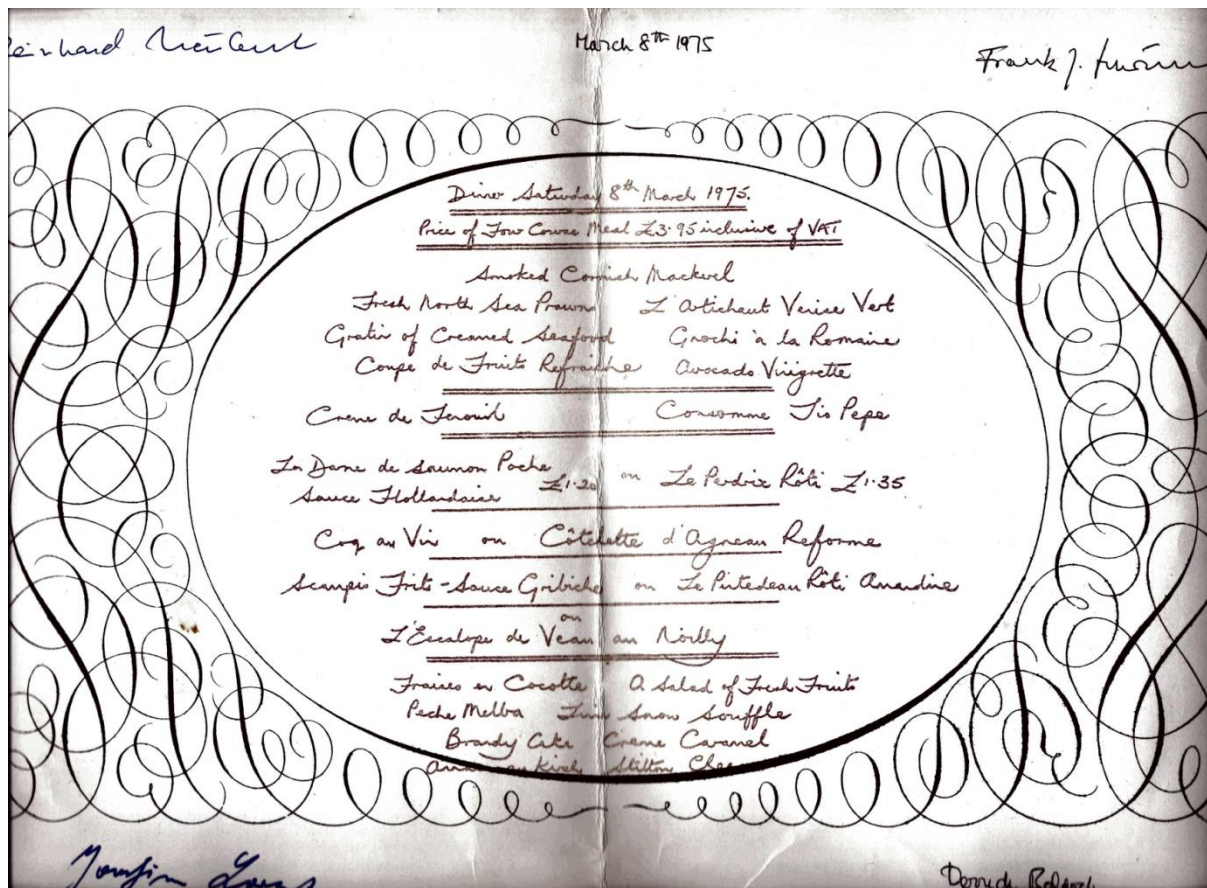 March 8th 1975
Frank J.
Diner Saturday 8th March 1975.
Price of Four Course Meal £3.95 inclusive of VAT
Smoked Cornish Mackerel
Fresh North Sea Prawn L'Artichaut Verise Vert
Gratin of Creamed Seafood Gnochi à la Romaine
Coupe de Fruits Refraiche Avocado Vinigrette
Creme de Fenouil Consomme Tio Pepe
La Darne de Saumon Poche
Sauce Hollandaise £1.20 ou Le Perdrix Rôti £1.35
Coq au Vin ou Côtelette d'Agneau Reforme
Scampis Frits - Sauce Gribiche ou Le Pintedeau Rôti Amandine
ou
L'Escalope de Veau au Noilly
Fraises en Cocotte A Salad of Fresh Fruits
Peche Melba Snow Souffle
Brandy Cake Creme Caramel
Kirch Stilton